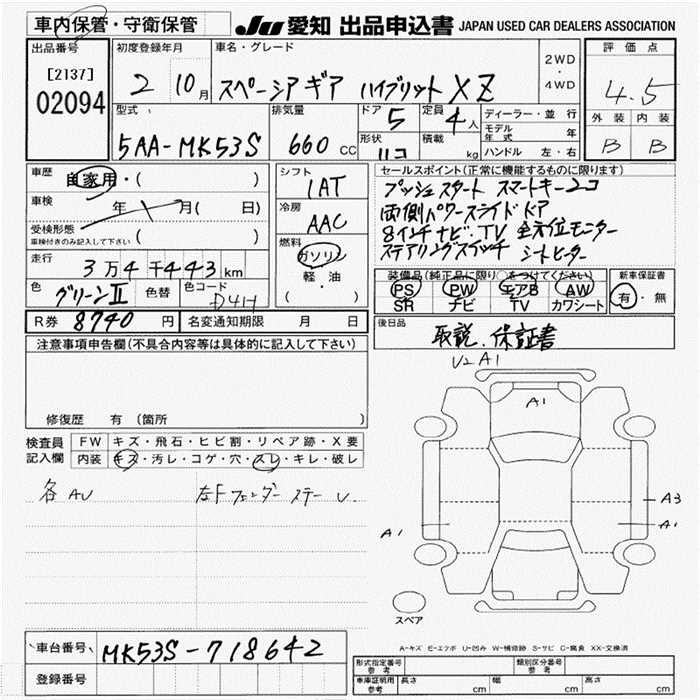 車内保管・守衛保管
JU 愛知 出品申込書 JAPAN USED CAR DEALERS ASSOCIATION
出品番号 初度登録年月 車名・グレード 評価点
[2137]
02094
2 10月 スペーシア ギア ハイブリット XZ 2WD・4WD 4.5
型式 排気量 ドア 定員 ディーラー・並行 外装 内装
5AA-MK53S 660 CC 5 4人 モデル年式 年 B B
形状 積載 kg ハンドル 左・右
車歴 自家用・( )
シフト 1AT
セールスポイント(正常に機能するものに限ります)
プッシュスタート スマートキー2コ
両側パワースライドドア
8インチナビ.TV 全方位モニター
ステアリングスイッチ シートヒーター
車検 年 月( 日)
冷房 AAC
受検形態
車検付きのみ記入して下さい ( )
燃料 ガソリン 軽・油
走行 3万4千443km
色 グリーンⅡ 色替 色コード D4H
装備品(純正品に限り○をつけてください) 新車保証書
PS PW エアB AW 有・無
SR ナビ TV カワシート
R券 8740円 名変通知期限 月 日
後日品 取説.保証書
注意事項申告欄(不具合内容等は具体的に記入して下さい)
修復歴 有(箇所 )
検査員記入欄 FW キズ・飛石・ヒビ割・リペア跡・X要
内装 キズ・汚レ・コゲ・穴・スレ・キレ・破レ
各AU 左Fフェンダー ステー U
U2 A1
A1
A3
A1 A1
スペア
A-キズ E-エクボ U-凹み W-補修跡 S-サビ C-腐食 XX-交換済
車台番号 MK53S-718642
登録番号
形式指定番号 参考 類別区分番号 参考
車庫証明用 参考 長さ cm 幅 cm 高さ cm